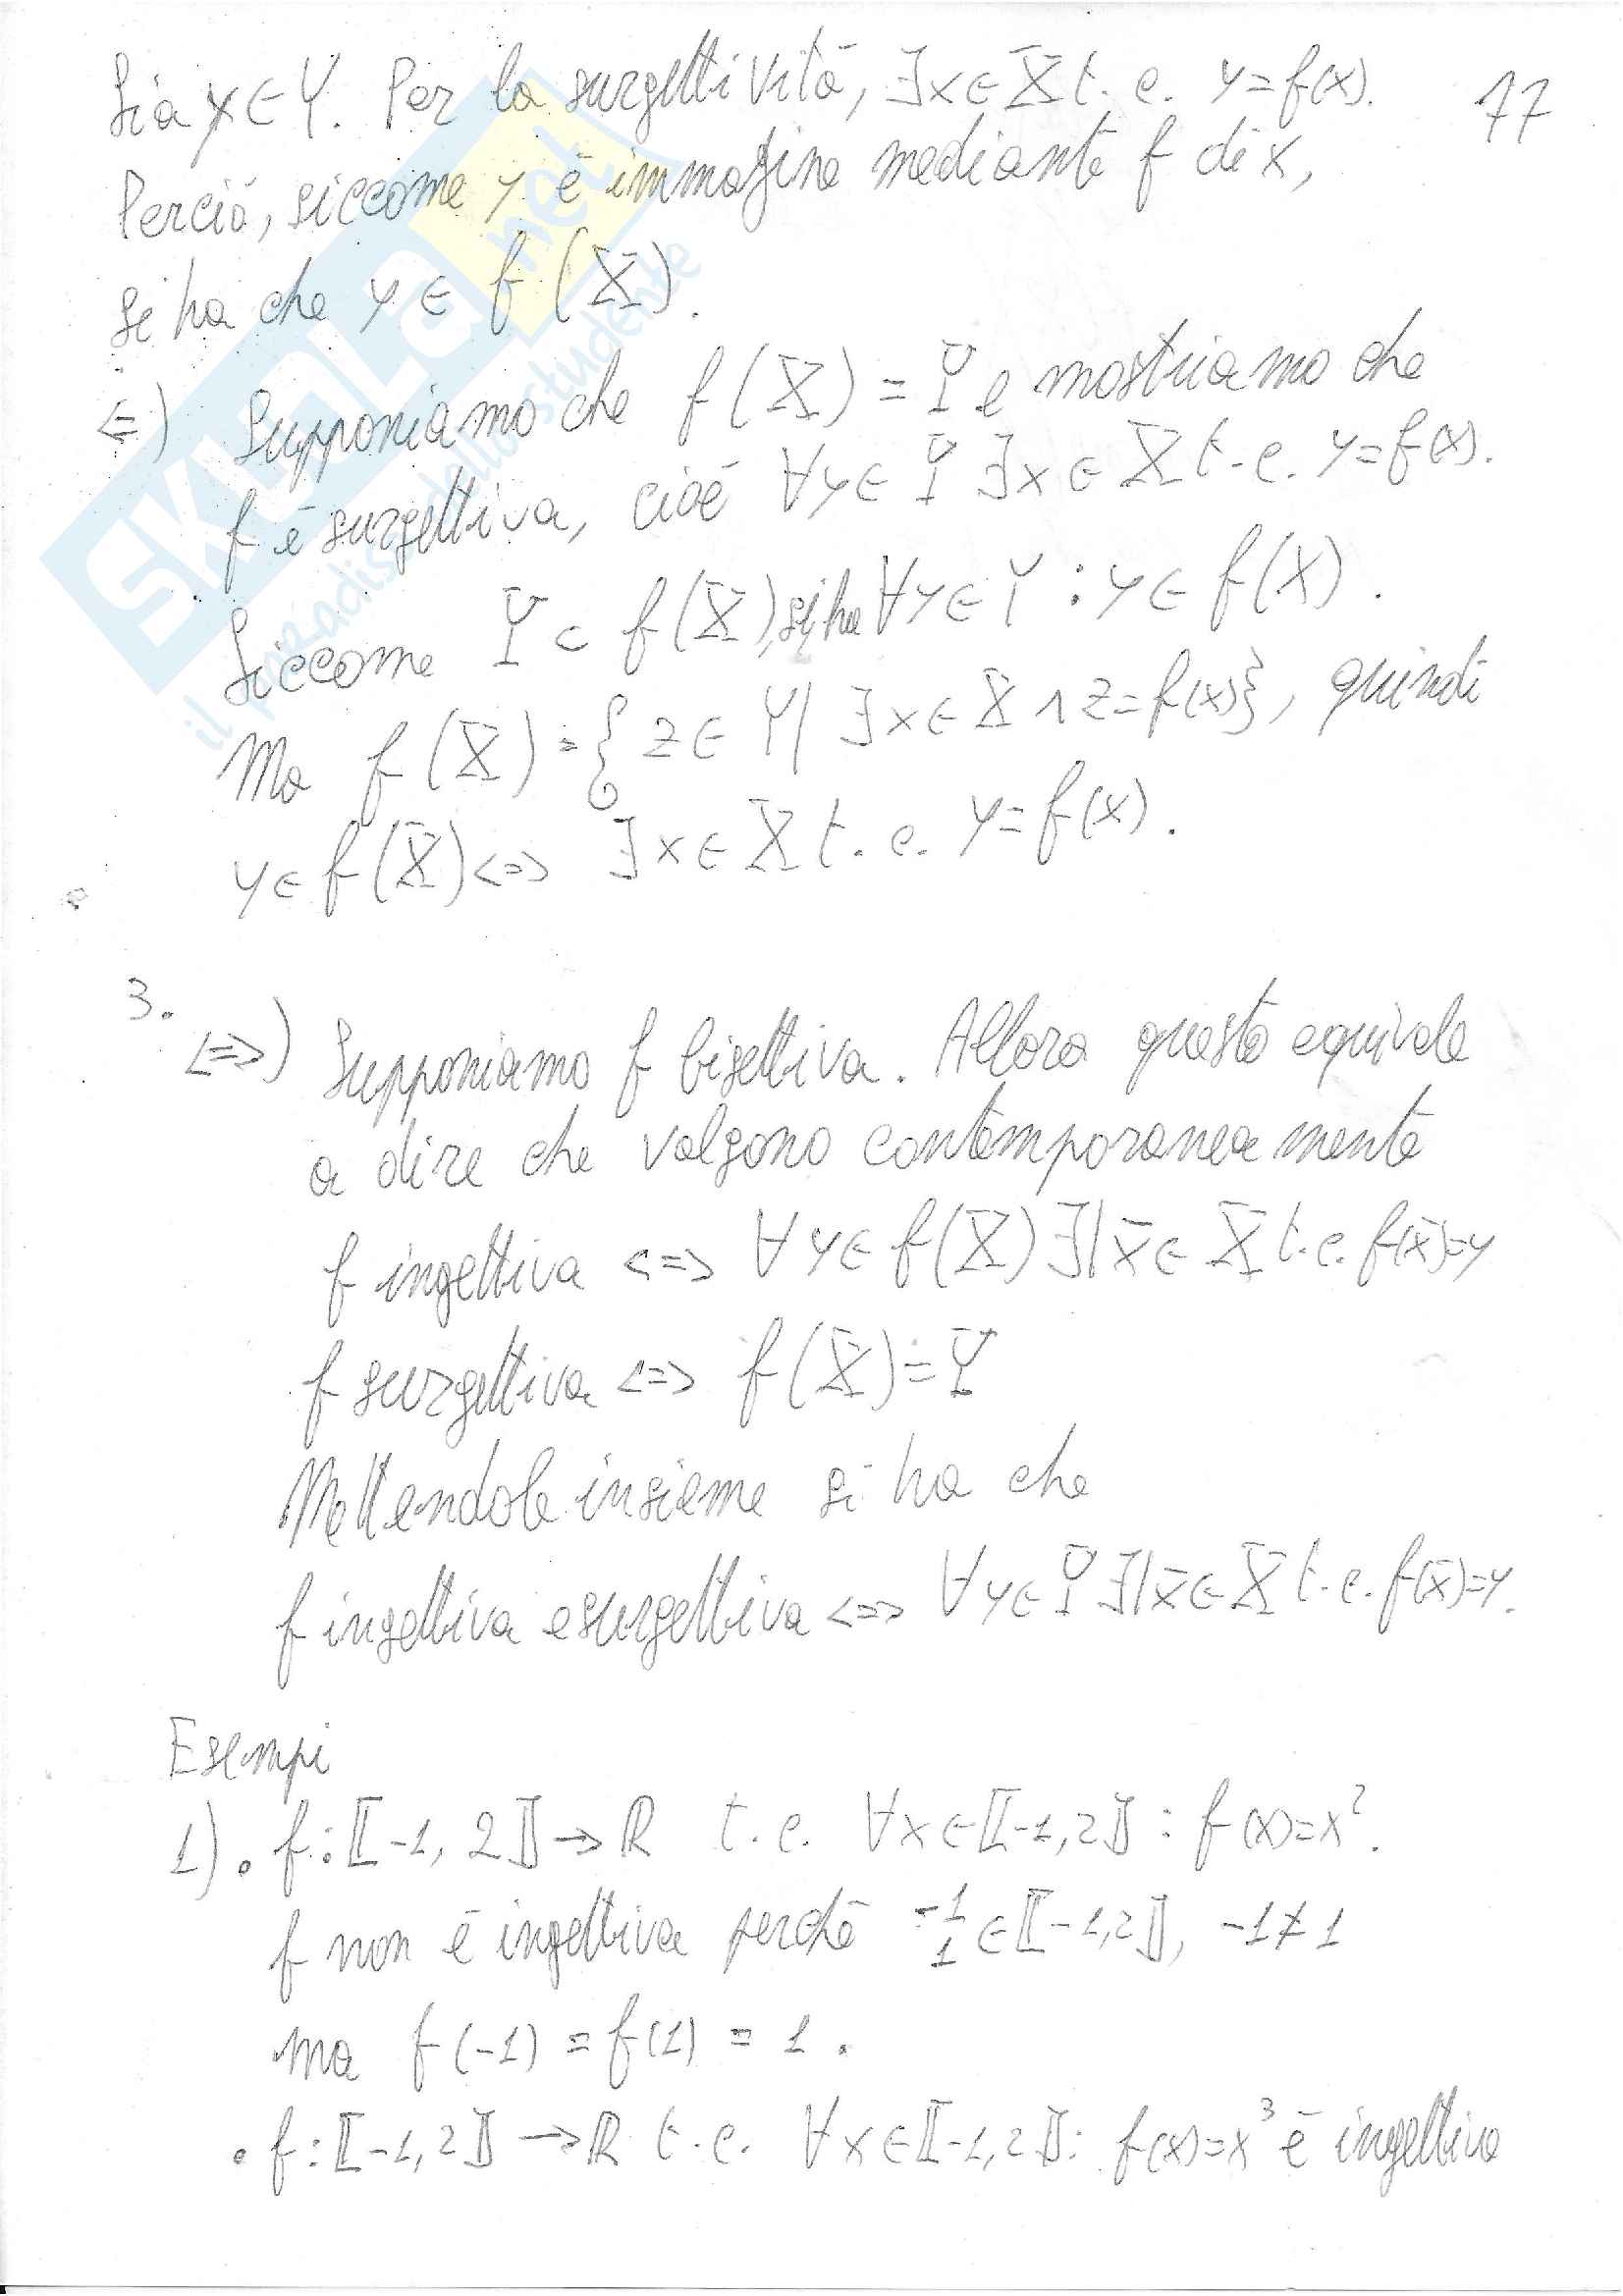 Sia y ∈ Y. Per la surgettività, ∃x ∈ X t.c. y=f(x). 77
Perciò, siccome y è immagine mediante f di x,
si ha che y ∈ f(X).
⇐) Supponiamo che f(X) = Y e mostriamo che
f è surgettiva, cioè ∀y ∈ Y ∃x ∈ X t.c. y=f(x).
Siccome Y ⊂ f(X), si ha ∀y ∈ Y : y ∈ f(X).
Ma f(X) = {z ∈ Y | ∃x ∈ X ∧ z=f(x)}, quindi
y ∈ f(X) <=> ∃x ∈ X t.c. y=f(x).
3. <=>) Supponiamo f bigettiva. Allora questo equivale
a dire che valgono contemporaneamente
f ingettiva <=> ∀y ∈ f(X) ∃| x̄ ∈ X t.c. f(x̄)=y
f surgettiva <=> f(X) = Y
Mettendole insieme si ha che
f ingettiva e surgettiva <=> ∀y ∈ Y ∃| x̄ ∈ X t.c. f(x̄)=y.
Esempi
1) • f: ⟦-1, 2⟧ → ℝ t.c. ∀x ∈ ⟦-1,2⟧ : f(x)=x².
f non è ingettiva perché -1 1 ∈ ⟦-1,2⟧, -1≠1
ma f(-1) = f(1) = 1.
• f: ⟦-1,2⟧ → ℝ t.c. ∀x ∈ ⟦-1,2⟧: f(x)=x³ è ingettiva
SKUOLA.net
il paradiso dello studente